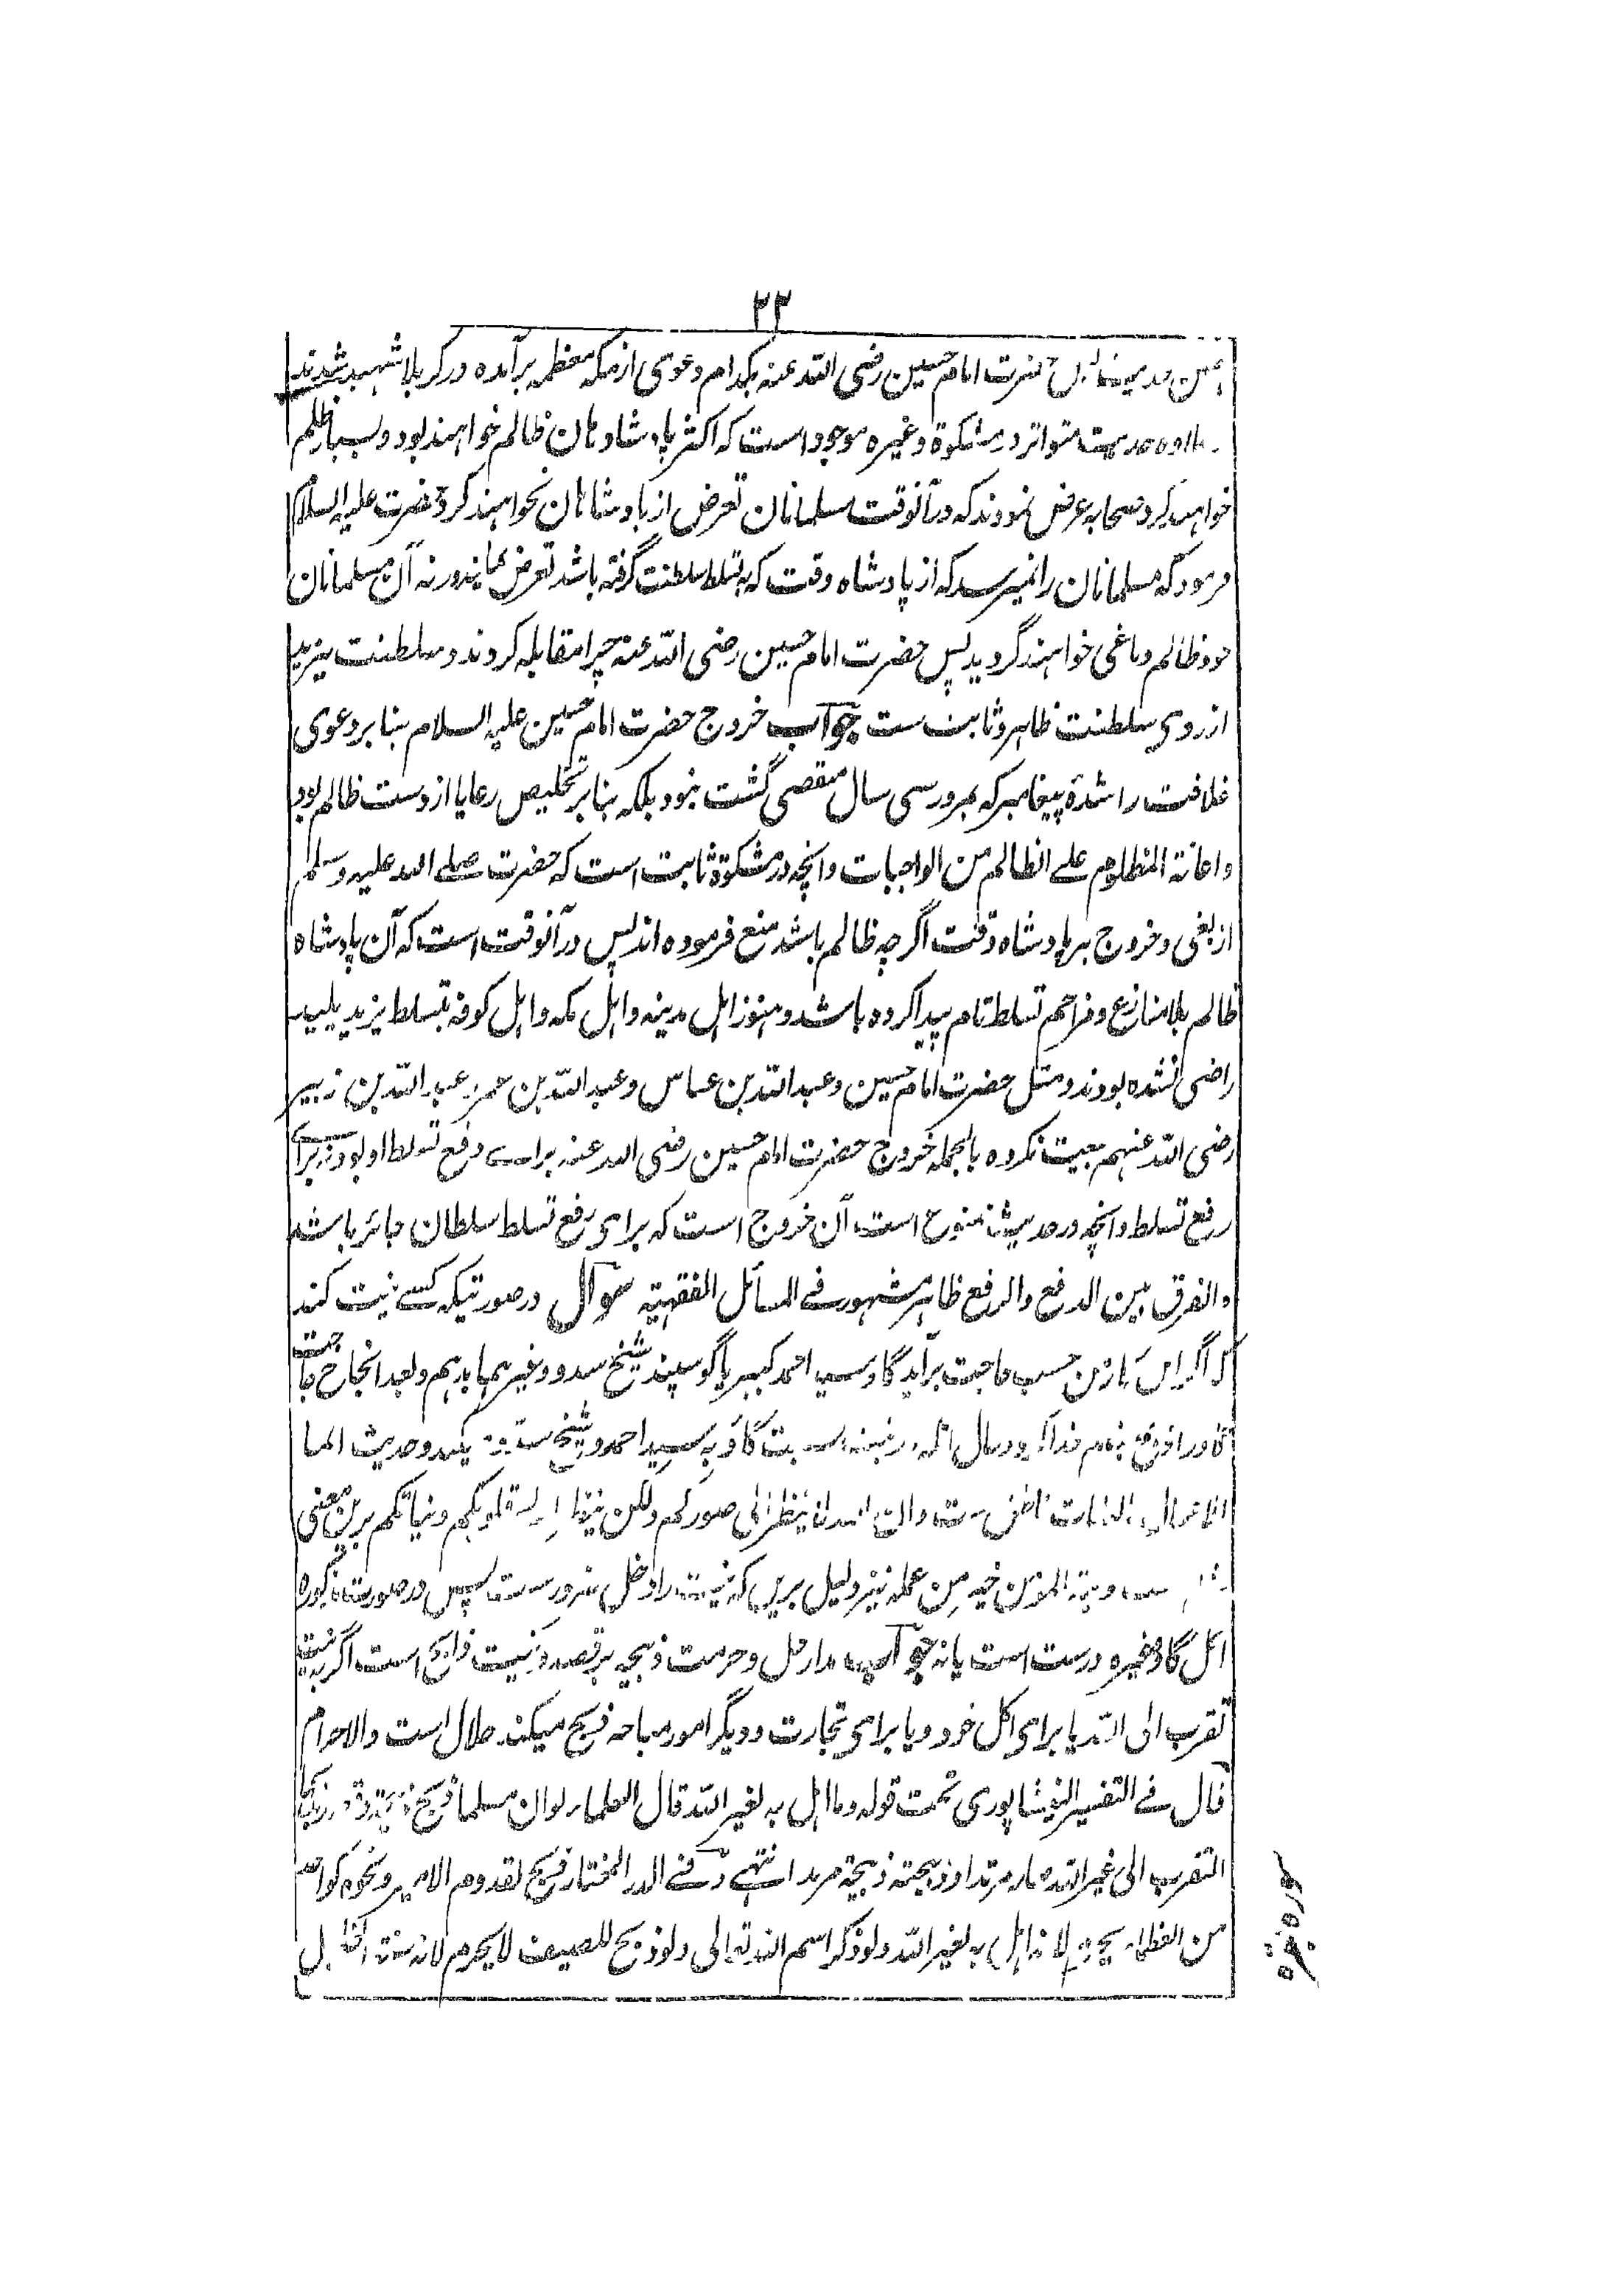 ۲۳
حضرت امام حسین رضی الله عنه بکدام دعوی از مکه معظمه برآمده در کربلا شهید شدند
حدیث متواتر در مشکوة وغیره موجود است که اکثر پادشاهان ظالم خواهند بود و بسیار ظلم
خواهند کرد صحابه عرض نمودند که در آنوقت مسلمانان تعرض از بادشاهان نخواهند کرد حضرت علیه السلام
فرمود که مسلمانان را نمیرسد که از پادشاه وقت که به تسلط سلطنت گرفته باشد تعرض نمایند ورنه آن مسلمانان
خود ظالم و باغی خواهند گردید پس حضرت امام حسین رضی الله عنه چرا مقابله کردند و سلطنت یزید
از روی سلطنت ظاهر و ثابت ست جواب خروج حضرت امام حسین علیه السلام بنا بر دعوی
خلافت راشدهٔ پیغامبر که بمرور سی سال منقضی گشت نبود بلکه بنا بر تخلیص رعایا از دست ظالم بود
و اعانة المظلوم علی الظالم من الواجبات وانچه در مشکوة ثابت است که حضرت صلے الله علیه وسلم
از بغی و خروج بر پادشاه وقت اگر چه ظالم باشد منع فرموده اند پس در آنوقت است که آن پادشاه
ظالم بلا منازع و مزاحم تسلط تام پیدا کرده باشد و هنوز اهل مدینه و اهل مکه و اهل کوفه بتسلط یزید پلید
راضی نشده بودند و مثل حضرت امام حسین و عبدالله بن عباس و عبدالله بن عمر و عبدالله بن زبیر
رضی الله عنهم بیعت نکرده بالجمله خروج حضرت امام حسین رضی الله عنه برای دفع تسلط او بود نه برای
رفع تسلط وانچه در حدیث ممنوع است آن خروج است که برای رفع تسلط سلطان جائر باشد
والفرق بین الدفع والرفع ظاهر مشهور فے المسائل الفقهیة سوال در صورتیکه کسے نیت کند
که اگر این کار من حسب حاجت برآید گاو سید احمد کبیر یا گوسپند شیخ سدو وغیرهما بدهم و بعد انجاح حاجت
گاو را ذبح بنام خدا نسبت گاو به سید احمد و شیخ سدو میکند و حدیث انما
الاعمال بالنیات ان الله لا ینظر الی صورکم ولکن ینظر الی قلوبکم ونیاتکم برین معنی
ونیة المؤمن خیر من عمله نیز دلیل برین که نیت را دخل ضرور ست پس در صورت مذکوره
اکل گاو وغیره درست است یا نه جواب مدار حل و حرمت ذبیحه بر قصد و نیت ذابح است اگر به نیت
تقرب الی الله یا برای اکل خود و یا برای تجارت و دیگر امور مباحه ذبح میکند حلال است والا حرام
قال فے التفسیر النیشاپوری تحت قوله وما اهل به لغیر الله قال العلماء لو ان مسلما ذبح ذبیحة وقصد بذبحها
التقرب الی غیر الله صار مرتدا وذبیحته ذبیحة مرتد انتهے وفے الدر المختار ذبح لقدوم الامیر ونحوه کواحد
من العظماء یحرم لانه اهل به لغیر الله ولو ذکر اسم الله تعالی ولو ذبح للضیف لا یحرم لانه سنة الخلیل
سوره بقره